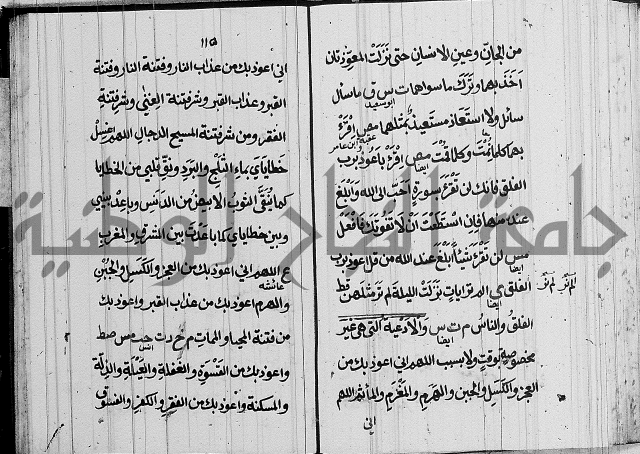 من الجان وعين الانسان حتى نزلت المعوذتان
اخذ بهما وترك ما سواهما ت س ق ما سأل
ابو سعيد
سائل ولا استعاذ مستعيذ بمثلها مص اقرأ
عقبة ابن عامر
بهما كلما نمت وكلما قمت مص اقرأ باعوذ برب
ايضا
الفلق فانك لن تقرأ بسورة احب الى الله وابلغ
عنده منها فان استطعت ان لا تفوتك فافعل
مس لن تقرأ شيئا ابلغ عند الله من قل اعوذ برب
ايضا
الفلق مي الم تر ايات نزلت الليلة لم تر مثلهن قط
لم تر
ايضا
الفلق والناس م ت س والادعية التي هي غير
ايضا
مخصوصة بوقت ولا بسبب اللهم اني اعوذ بك من
العجز والكسل والجبن والهرم والمغرم والمأثم اللهم
اني
١١٥
اني اعوذ بك من عذاب النار وفتنة النار وفتنة
القبر وعذاب القبر وشر فتنة الغنى وشر فتنة
الفقر ومن شر فتنة المسيح الدجال اللهم اغسل
خطاياي بماء الثلج والبرد ونق قلبي من الخطايا
كما ينقى الثوب الابيض من الدنس وباعد بيني
وبين خطاياي كما باعدت بين المشرق والمغرب
ع اللهم اني اعوذ بك من العجز والكسل والجبن
عائشه
والهرم اعوذ بك من عذاب القبر واعوذ بك
من فتنة المحيا والممات م خ د ت حب مس صط
انس
واعوذ بك من القسوة والغفلة والعيلة والذلة
والمسكنة واعوذ بك من الفقر والكفر والفسوق
جامعة النجاح الوطنية